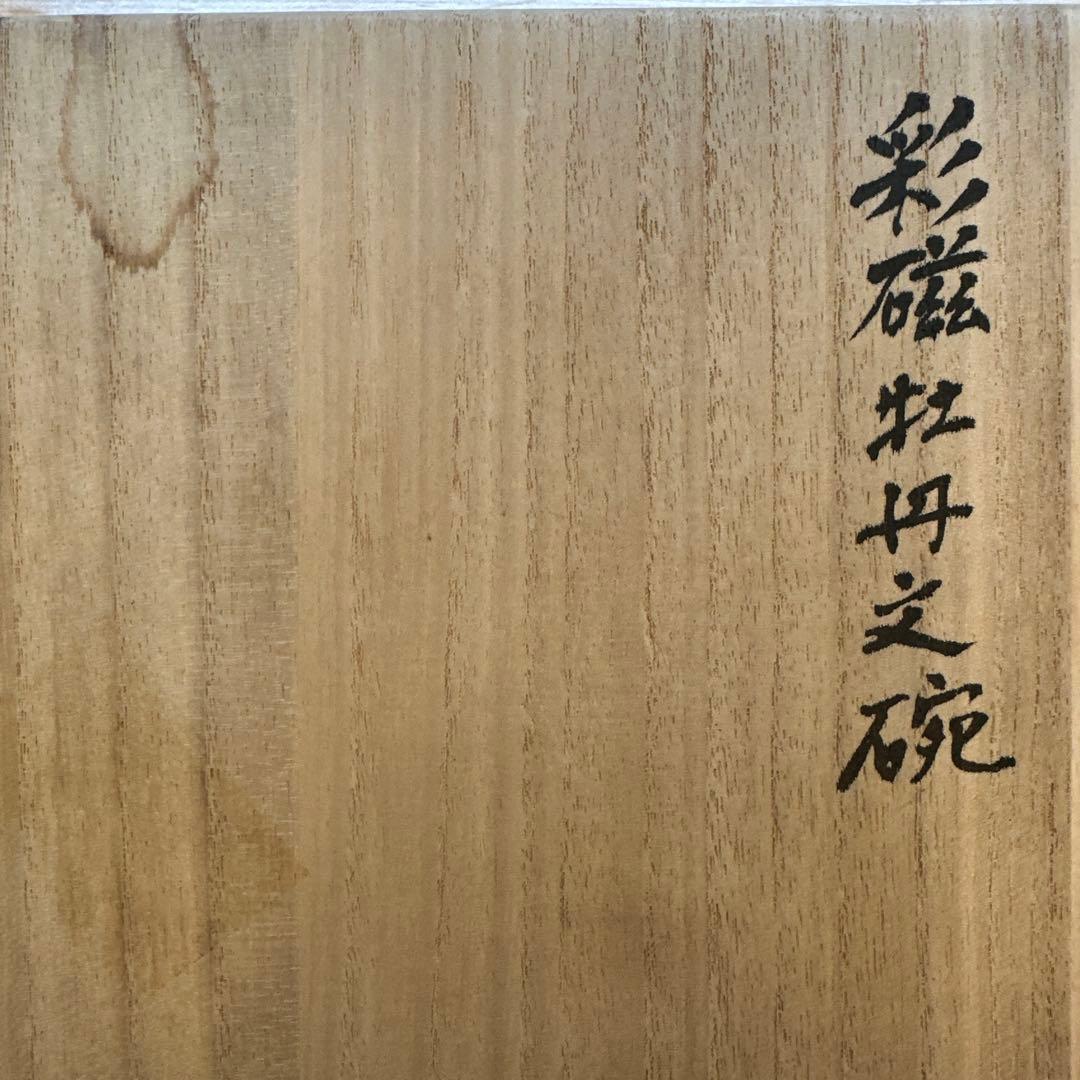 彩磁牡丹文碗